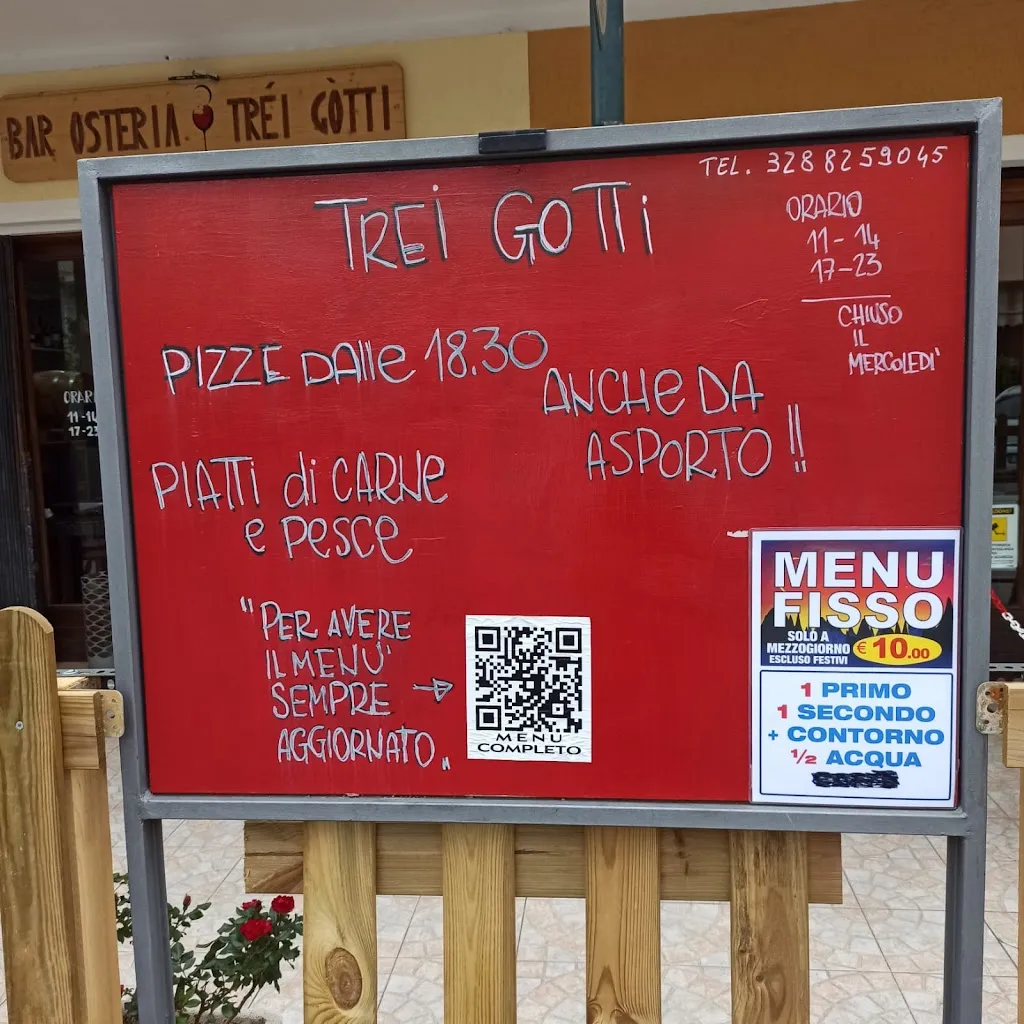 BAR OSTERIA TRÉI GÒTTI
TEL. 3288259045
TREI GOTTI
ORARIO
11-14
17-23
CHIUSO
IL
MERCOLEDI'
PIZZE DALLE 18.30
ANCHE DA
ASPORTO !!
PIATTI di CARNE
e PESCE
"PER AVERE
IL MENU'
SEMPRE
AGGIORNATO."
MENÙ
COMPLETO
MENU
FISSO
SOLO A
MEZZOGIORNO
ESCLUSO FESTIVI
€ 10.00
1 PRIMO
1 SECONDO
+ CONTORNO
½ ACQUA
ORARI
11-14
17-23